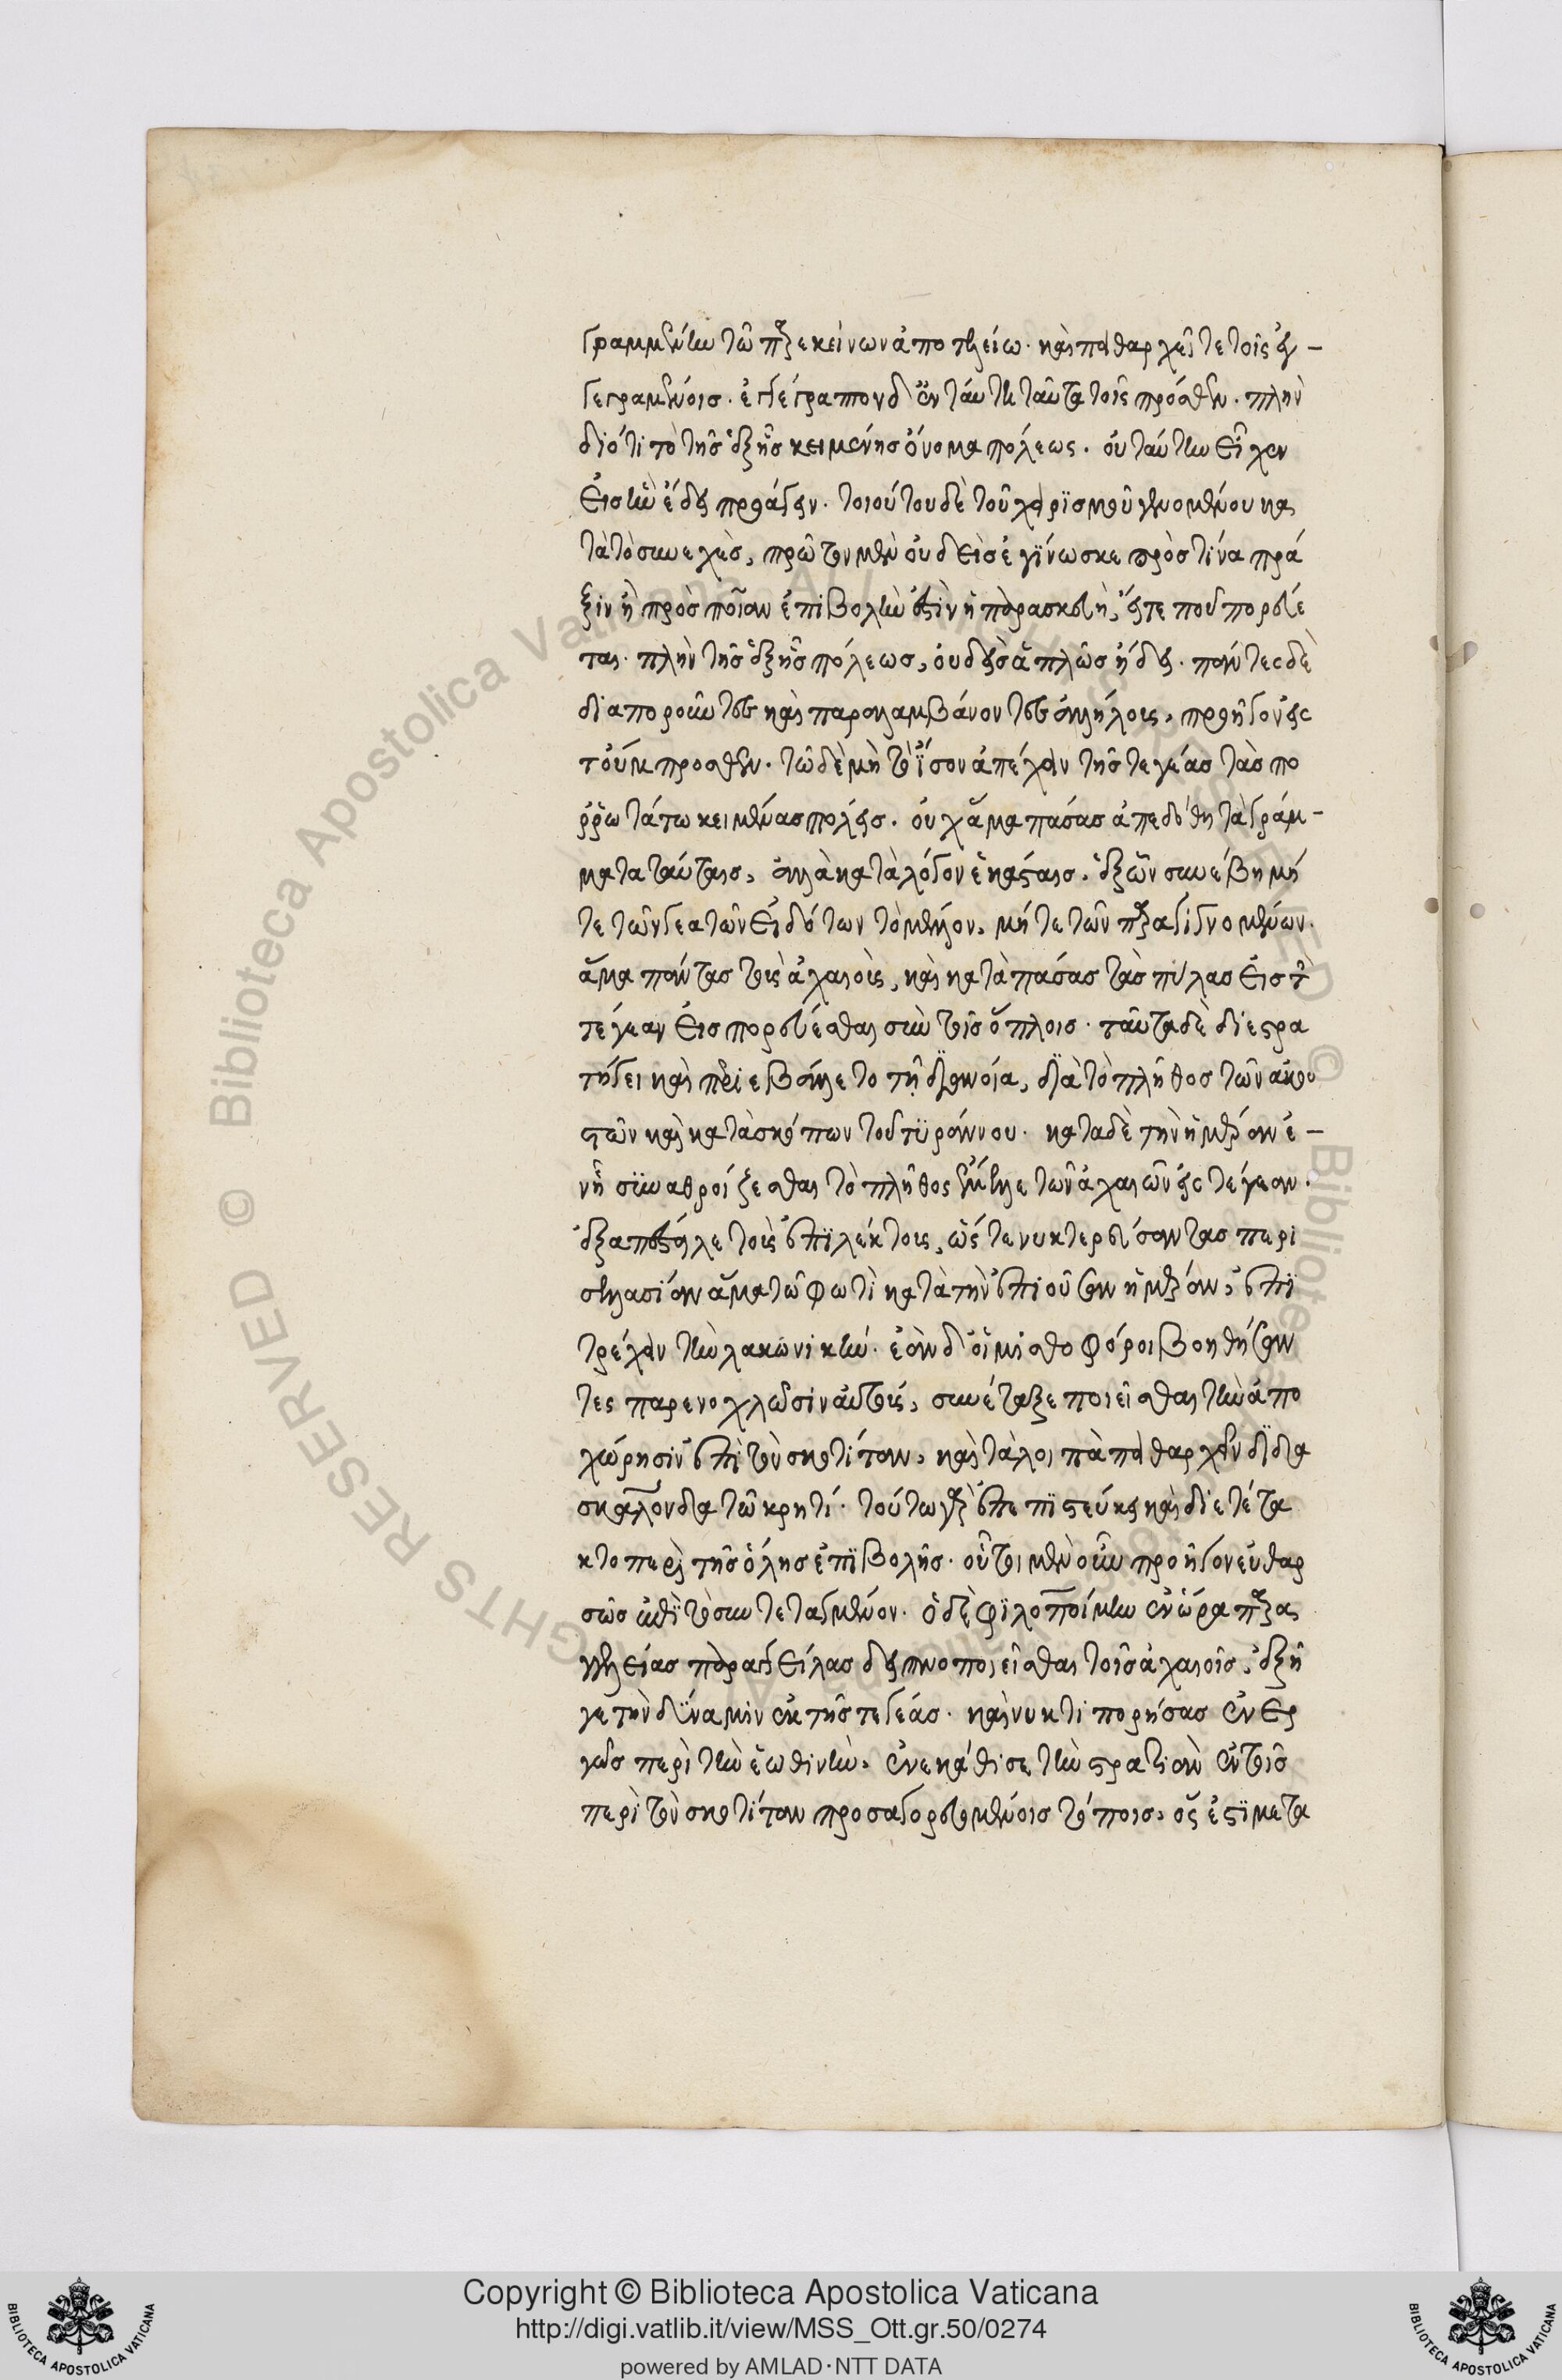 γραμμένην τῶν παρ' ἐκείνων ἀποστελεῖτε· καὶ πειθαρχεῖτε τοῖς ἐγ-
γεγραμμένοις. ἐγέγραπτο δ' ἐν ταύτῃ ταῦτα τοῖς πρόσθεν. πλὴν
διότι τὸ τῆς ἑξῆς κειμένης ὄνομα πόλεως. οὐ ταύτην εἶχεν
εἰς ἣν ἔδει προάγειν. τοιούτου δὲ τοῦ χειρισμοῦ γενομένου κα
τὰ τὸ συνεχὲς, πρῶτον μὲν οὐδεὶς ἐγίνωσκε πρὸς τίνα πρᾶ
ξιν ἢ πρὸς ποῖαν ἐπιβολὴν ἐστὶν ἡ παρασκευὴ, εἴτε ποῦ πορεύε
ται. πλὴν τῆς ἑξῆς πόλεως, οὐδεὶς ἁπλῶς ᾔδει. πάντες δὲ
διαποροῦντες καὶ παραλαμβάνοντες ἀλλήλους, προῆγον εἰς
τοὔμπροσθεν. τῷ δὲ μὴ τὸ ἴσον ἀπέχειν τῆς τεγέας τὰς πο
ρρωτάτω κειμένας πόλεις. οὐχ ἅμα πάσας ἀπεδόθη τὰ γράμ-
ματα ταύταις, ἀλλὰ κατὰ λόγον ἑκάσταις. ἐξ ὧν συνέβη μή
τε τῶν γεατῶν εἰδότων τὸ μέλλον, μήτε τῶν παραγιγνομένων.
ἅμα πάντας τοὺς ἀχαιοὺς, καὶ κατὰ πάσας τὰς πύλας εἰς τὴν
τέγεαν εἰσπορεύεσθαι σὺν τοῖς ὅπλοις. ταῦτα δὲ διεστρα
τήγει καὶ περιεβάλλετο τῇ διανοίᾳ, διὰ τὸ πλῆθος τῶν ἀκου
στῶν καὶ κατασκόπων τοῦ τυράννου. κατὰ δὲ τὴν ἡμέραν ἐ-
ν ᾗ συναθροίζεσθαι τὸ πλῆθος ἔμελλε τῶν ἀχαιῶν εἰς τέγεαν.
ἐξαπέστειλε τοὺς ἐπιλέκτους, ὥστε νυκτερεύσαντας περὶ
σελλασίαν ἅμα τῷ φωτὶ κατὰ τὴν ἐπιοῦσαν ἡμέραν, ἐπι
τρέχειν τὴν λακωνικήν. ἐὰν δ' οἱ μισθοφόροι βοηθήσαν
τες παρενοχλῶσιν αὐτούς, συνέταξε ποιεῖσθαι τὴν ἀπο
χώρησιν ἐπὶ τὸν σκοτίταν, καὶ τὰ λοιπὰ πειθαρχεῖν διδα
σκαλόνδα τῷ κρητί. τούτῳ γὰρ ἐπεπιστεύκει καὶ διετέτα
κτο περὶ τῆς ὅλης ἐπιβολῆς. οὗτοι μὲν οὖν προῆγον εὐθαρ
σῶς ἐπὶ τὸ συντεταγμένον. ὁ δὲ φιλοποίμην ἐν ὥρᾳ παρα
γγείλας δειπνοποιεῖσθαι τοῖς ἀχαιοῖς, ἐξῆ
γε τὴν δύναμιν ἐκ τῆς τεγέας. καὶ νυκτιπορήσας ἐνερ
γῶς περὶ τὴν ἑωθινὴν, ἐνεκάθισε τὴν στρατιὰν ἐν τοῖς
περὶ τὸν σκοτίταν προσαγορευομένοις τόποις, ὅς ἐστι μετα